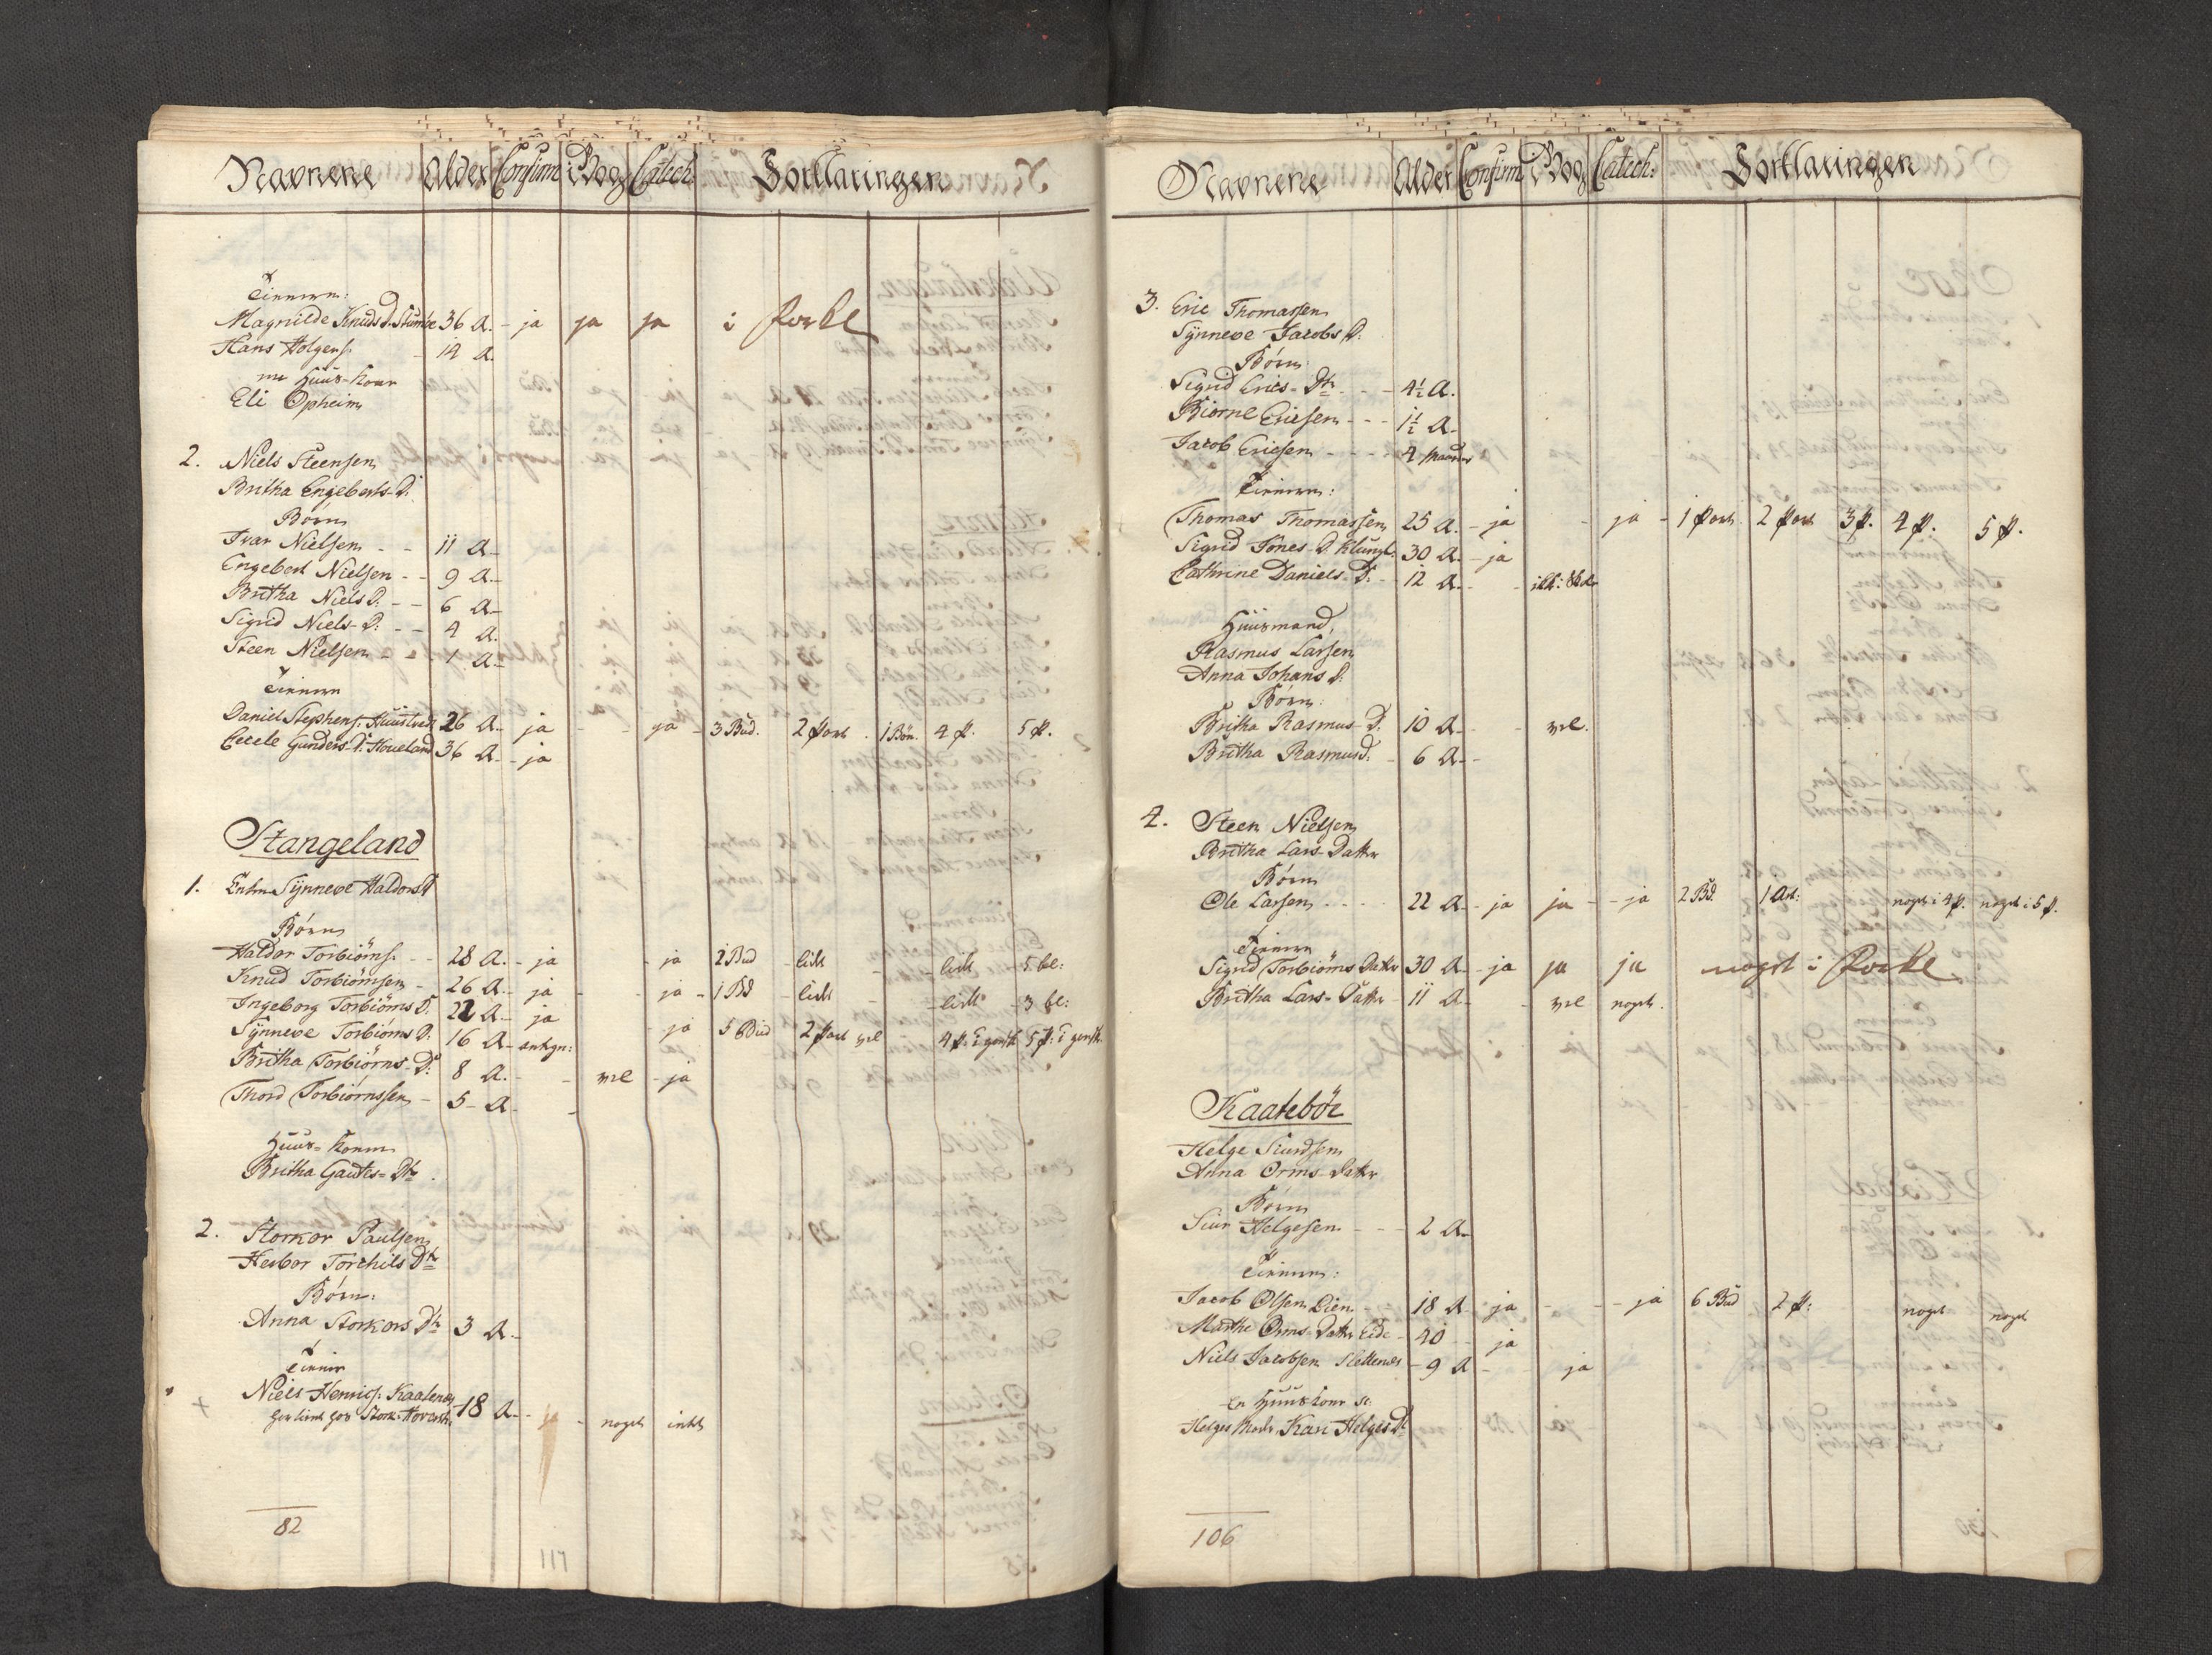 Navnene Alder Confirm i Bog Catech: Forklaringen
Tienern:
Magnilde Knuds D. Stumbe 36 A. - ja ja ja i Forkl
Hans Holgens. - 14 A.
en Huus-Kone
Eli Opheim
2. Niels Steensen
Britha Engeberts-D:
Børn
Ivar Nielsen - - 11 A-
Engebert Nielsen - - 9 A-
Britha Niels D: - - 6 A-
Sigrid Niels-D: - - 4 A.
Steen Nielsen - - 1 A-
Tienern
Daniel Stephens. Huustvedt 26 A- ja - - ja - 3 Bud. 2 Part. 1 Bøn. 4 P. 5 P.
Cecele Gunders-D. Houeland 36 A- - ja
Stangeland
1. Enken Synneve Haldors D
Børn
Haldor Torbiörns. - - 28 A. - ja - ja 2 Bud - lidt - - lidt - 5 bl:
Knud Torbiörnsen - 26 A- ja - - ja - 1 Bd - lidt - - lidt - 3 bl:
Ingeborg Torbiörns D. 22 A- ja
Synneve Torbiörns D. 16 A- antegn: - ja 5 Bud 2 Part vel 4 P. i gensk 5 P: i gensk.
Britha Torbiørns-D: 8 A. - - vel - ja
Thord Torbiørnssen - 5 - A - -
Huus-Konen
Britha Gautes-Dtr.
2. Storkor Paulsen
Herbor Torchils Dtr
Børn:
Anna Storkors Dtr 3 A.
Tienere
Niels Henrics. Kaatenes 18 A- - ja - noget intet
82
117
Navnene Alder Confirm i Bog Catech: Forklaringen
3. Eric Thomassen
Synneve Jacobs D:
Børn:
Sigrid Erics-Dtr - - - 4½ A.
Biørne Ericsen - - - 1½ A-
Jacob Ericsen - - - - 4 Maaneder
Tienern:
Thomas Thomassen 25 A. - ja - ja - 1 Part. 2 Part 3 P. 4 P: 5 P.
Sigrid Iones-D Klungl: 30 A. - ja
Cathrine Daniels-D: - 12 A- -
Huusmand,
Rasmus Larsen
Anna Johans D:
Børn:
Britha Rasmus-D: 10 A- - - vel.
Britha Rasmusd: - 6 A- -
4. Steen Nielsen
Britha Lars-Datter
Børn
Ole Larsen - - - - 22 A- - ja ja - - ja 2 Bd. 1 Art: noget i 4 P. noget i 5 P.
Tienern
Sigrid Torbiörns Datter 30 A- - ja ja ja noget i Forkl
Britha Lars-Datter - 11 A- - vel noget.
Kaateböe
Helge Siurdsen
Anna Orms-Datter
Børn
Siur Helgesen - - - 2 A-
Tienern:
Jacob Olsen Oien - - 18 A ja - - - ja 6 Bud 2 P: noget noget
Marthe Orms-Datter Eide - 40 - - ja
Niels Jacobsen Slettenes - 9 A - - ja
en Huuskone er
Helges Moder, Kari Helges D:
106